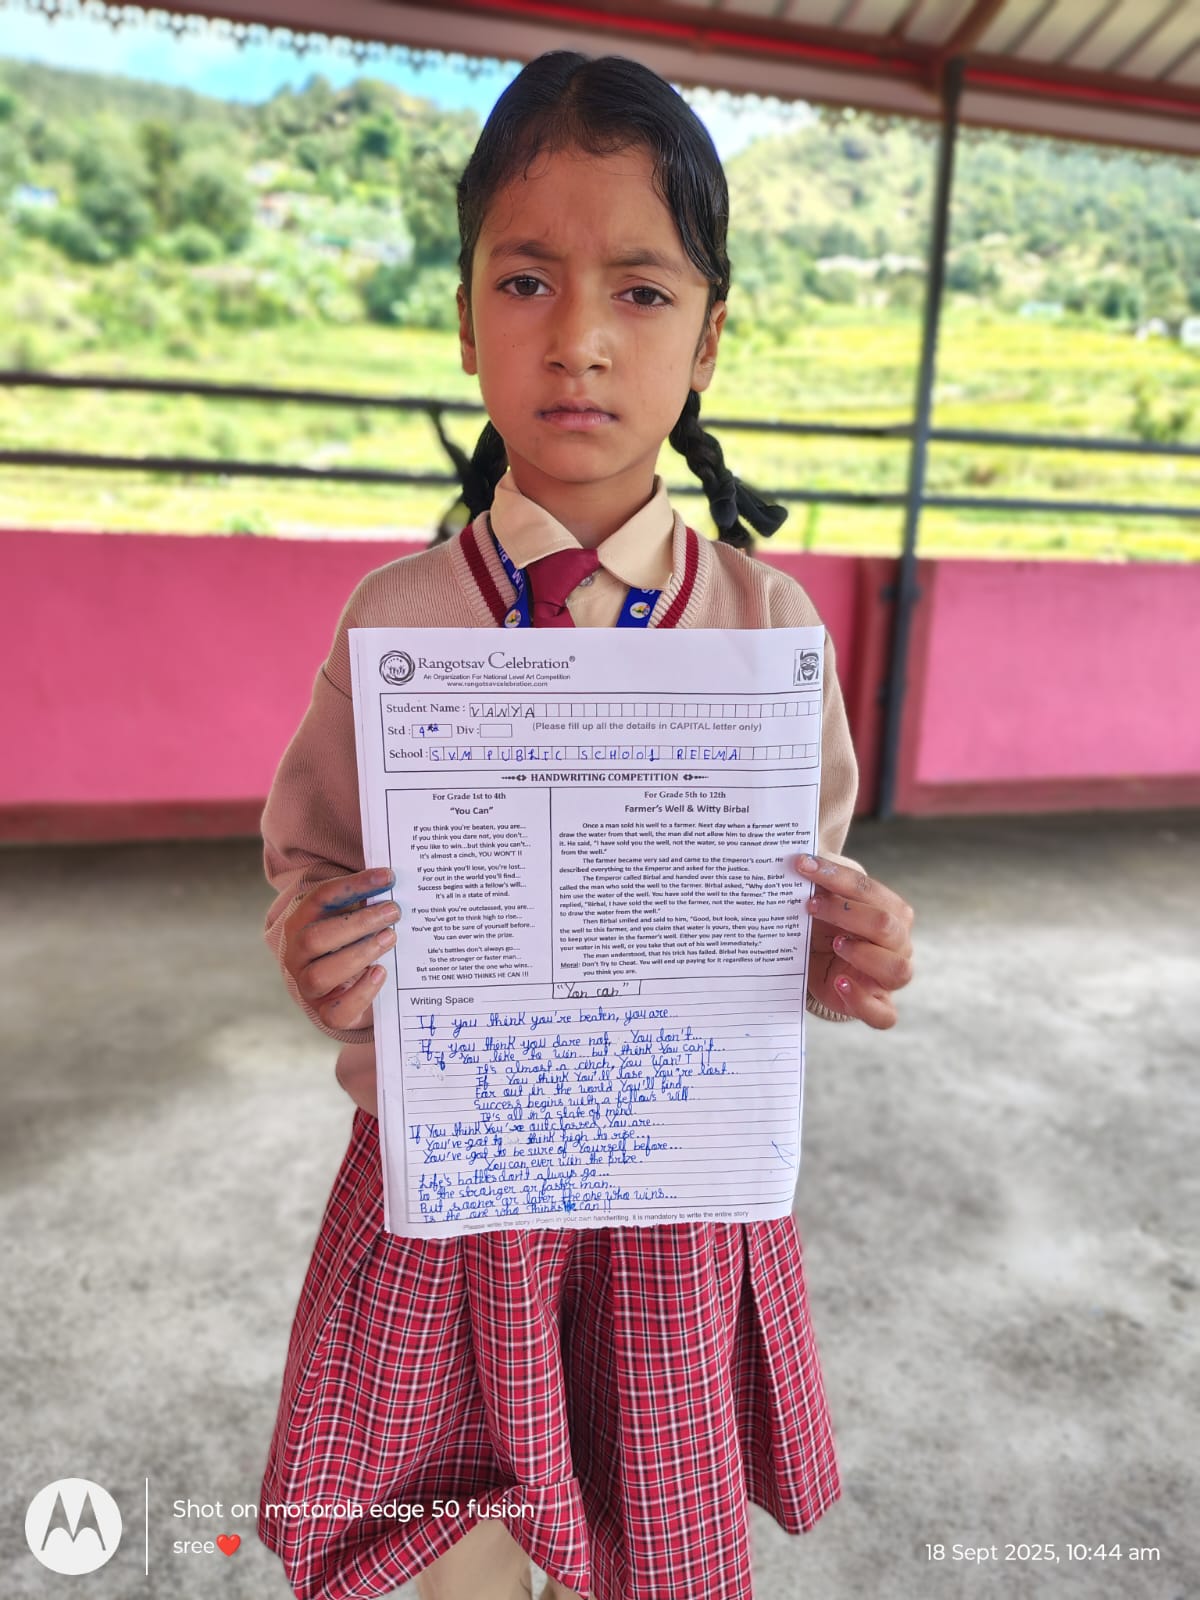 Rangotsav Celebration®
An Organization For National Level Art Competition
www.rangotsavcelebration.com
Student Name : VANYA
Std : 4th Div : (Please fill up all the details in CAPITAL letter only)
School : S V M PUBLIC SCHOOL REEMA
HANDWRITING COMPETITION
For Grade 1st to 4th
"You Can"
If you think you're beaten, you are...
If you think you dare not, you don't...
If you like to win...but think you can't...
It's almost a cinch, YOU WON'T !!
If you think you'll lose, you're lost...
For out in the world you'll find...
Success begins with a fellow's will...
It's all in a state of mind.
If you think you're outclassed, you are....
You've got to think high to rise...
You've got to be sure of yourself before...
You can ever win the prize.
Life's battles don't always go....
To the stronger or faster man...
But sooner or later the one who wins...
IS THE ONE WHO THINKS HE CAN !!!
For Grade 5th to 12th
Farmer's Well & Witty Birbal
Once a man sold his well to a farmer. Next day when a farmer went to
draw the water from that well, the man did not allow him to draw the water from
it. He said, "I have sold you the well, not the water, so you cannot draw the water
from the well."
The farmer became very sad and came to the Emperor's court. He
described everything to the Emperor and asked for the justice.
The Emperor called Birbal and handed over this case to him. Birbal
called the man who sold the well to the farmer. Birbal asked, "Why don't you let
him use the water of the well. You have sold the well to the farmer." The man
replied, "Birbal, I have sold the well to the farmer, not the water. He has no right
to draw the water from the well."
Then Birbal smiled and said to him, "Good, but look, since you have sold
the well to this farmer, and you claim that water is yours, then you have no right
to keep your water in the farmer's well. Either you pay rent to the farmer to keep
your water in his well, or you take that out of his well immediately."
The man understood, that his trick has failed. Birbal has outwitted him."
Moral: Don't Try to Cheat. You will end up paying for it regardless of how smart
you think you are.
Writing Space
"You can"
If you think you're beaten, you are...
If you think you dare not, You don't...
If You like to win...but think You can't...
It's almost a cinch, You Wan'T !!
If You think You'll lase You're last...
Far out in the world You'll find...
Success begins with a fellow's will...
It's all in a state of mind.
If You think You're outclassed, You are...
You've got to think high to rise...
You've got to be sure of Yourself before...
You can ever win the prize.
Life's battles don't always go...
To the stronger or faster man...
But sooner or later the one who wins...
Is the one who thinks he can !!
Please write the story / Poem in your own handwriting. It is mandatory to write the entire story
Shot on motorola edge 50 fusion
sree❤️
18 Sept 2025, 10:44 am